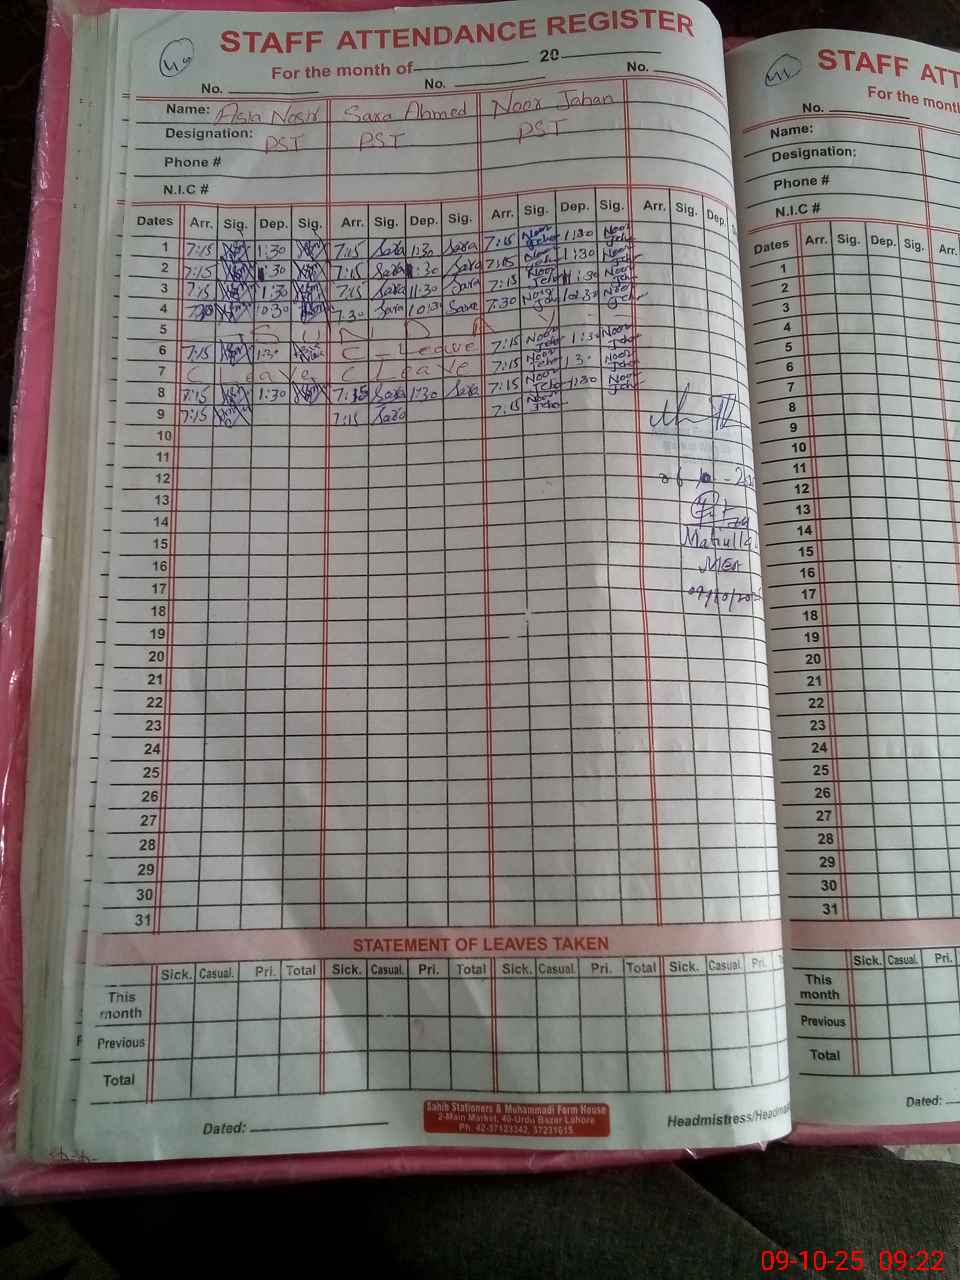 STAFF ATTENDANCE REGISTER
For the month of 20
No. No. No.
Name: Asia Nasir Sara Ahmed Noor Jahan
Designation: PST PST PST
Phone #
N.I.C #
Dates Arr. Sig. Dep. Sig. Arr. Sig. Dep. Sig. Arr. Sig. Dep. Sig. Arr. Sig. Dep.
1 7:15 1:30 7:15 Sara 1:30 Sara 7:15 Noor Jehan 1:30 Noor Jehan
2 7:15 1:30 7:15 Sara 1:30 Sara 7:15 Noor Jehan 1:30 Noor Jehan
3 7:15 1:30 7:15 Sara 1:30 Sara 7:15 Noor Jehan 1:30 Noor Jehan
4 7:30 10:30 7:30 Sara 10:30 Sara 7:30 Noor Jehan 10:30 Noor Jehan
5 S U N D A Y
6 7:15 1:30 C-Leave 7:15 Noor Jehan 1:30 Noor Jehan
7 C Leave C Leave 7:15 Noor Jehan 1:30 Noor Jehan
8 7:15 1:30 7:15 Sara 1:30 Sara 7:15 Noor Jehan 1:30 Noor Jehan
9 7:15 7:15 Sara 7:15 Noor Jehan
10
11
12
13
14
15
16
17
18
19
20
21
22
23
24
25
26
27
28
29
30
31
MEA
STATEMENT OF LEAVES TAKEN
Sick. Casual. Pri. Total Sick. Casual. Pri. Total Sick. Casual. Pri. Total Sick. Casual. Pri.
This month
Previous
Total
Dated:
Sahib Stationers & Muhammadi Form House
2-Main Market, 40-Urdu Bazar Lahore
Ph. 42-37123342, 37231615
Headmistress/Headma
STAFF ATT
For the month
No.
Name:
Designation:
Phone #
N.I.C #
Dates Arr. Sig. Dep. Sig. Arr.
1
2
3
4
5
6
7
8
9
10
11
12
13
14
15
16
17
18
19
20
21
22
23
24
25
26
27
28
29
30
31
Sick. Casual. Pri.
This month
Previous
Total
Dated:
09-10-25 09:22